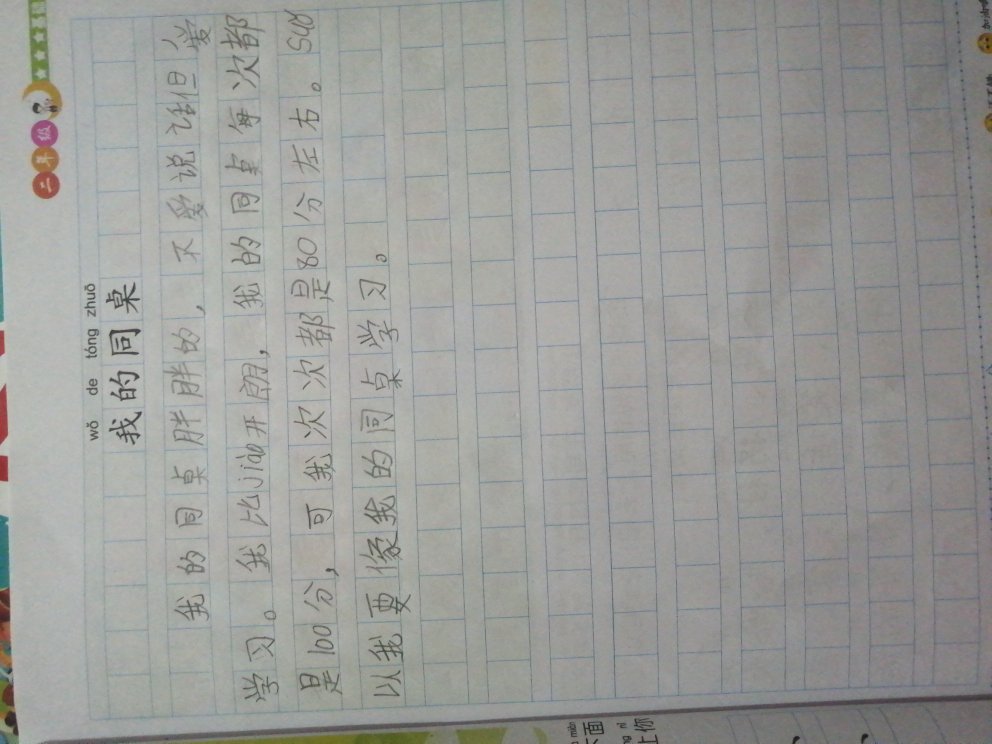 二年级
wǒ de tóng zhuō
我的同桌
我的同桌胖胖的，不爱说话但爱
学习。我比jiào开朗，我的同桌每次都
是100分，可我次次都是80分左右。suǒ
以我要像我的同桌学习。